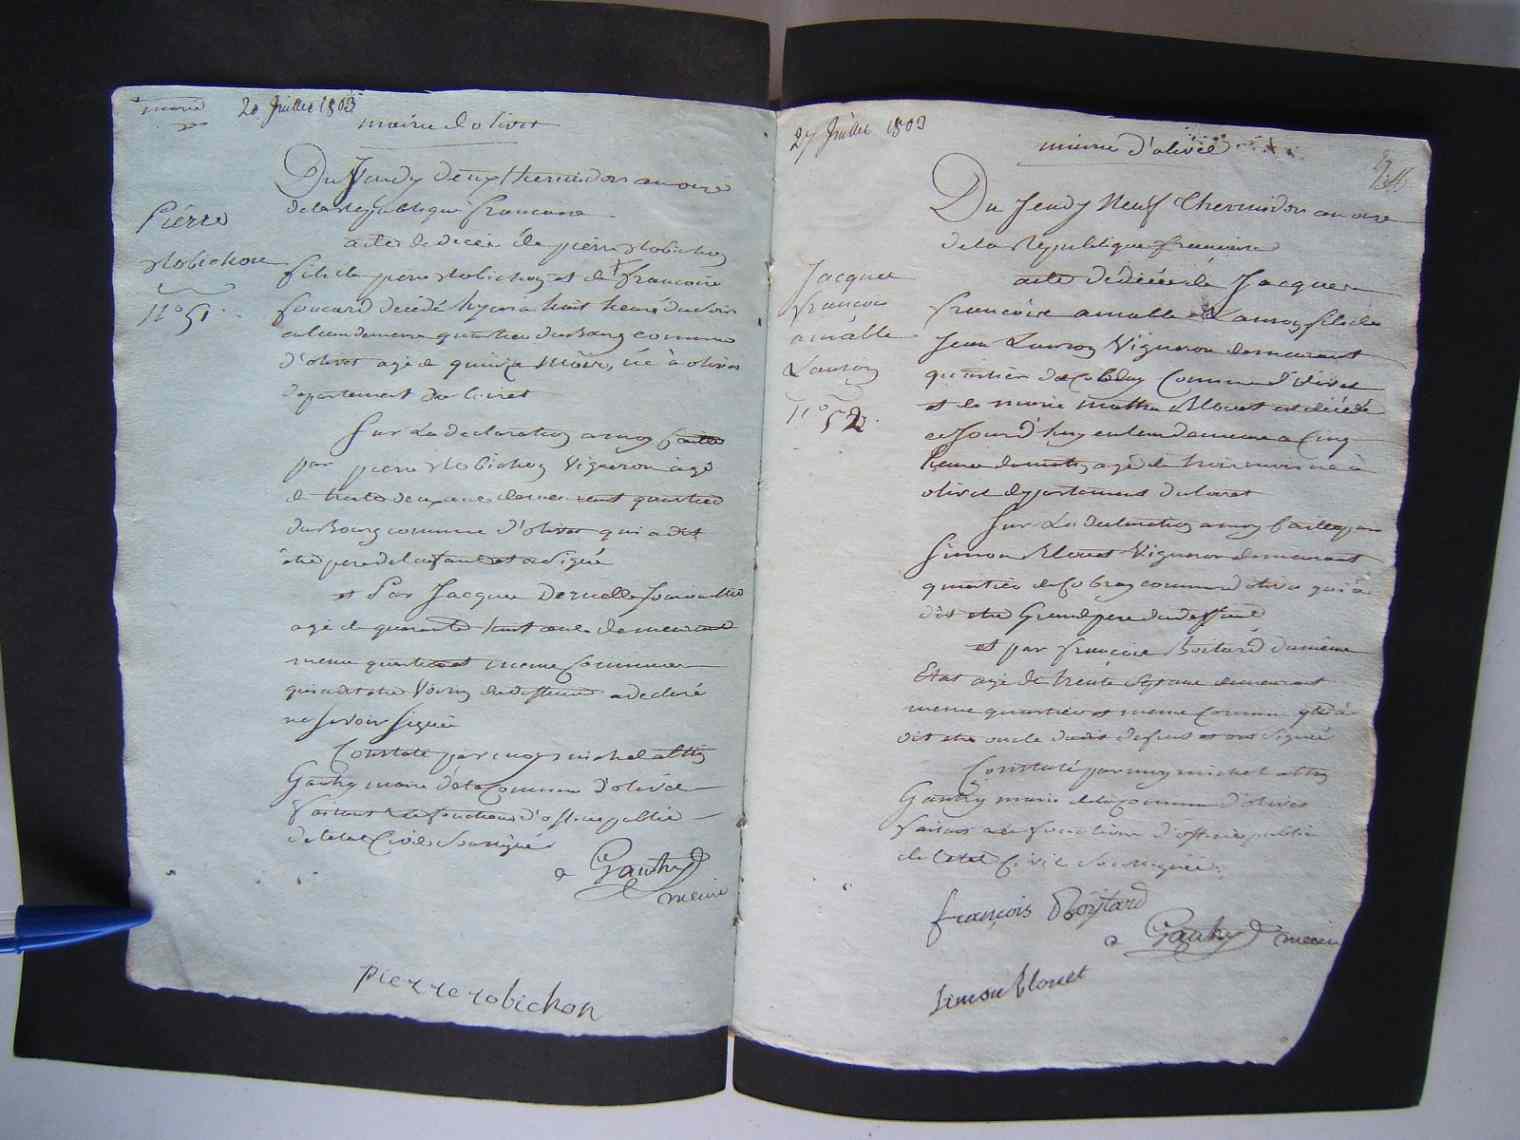 20 Juillet 1803
mairie d olivet
Du Jeudy deux thermidor an onze
de la republique francaise
acte de décès de pierre Robichon
fils de pierre Robichon et de francoise
foucard décédé hyer à huit heure du soir
en la demeure quartier du Bourg commune
d'olivet agé de quinze mois, né à olivet
departement du loiret
Sur La declaration a moy faitte
par pierre Robichon Vigneron agé
de trente deux ans demeurant quartier
du Bourg commune d'olivet qui a dit
être pere de l enfant et a Signé
et Par Jacque
agé de quarante huit ans demeurant
meme quartier et meme Commune
qui a dit etre Voisin du deffunt a declaré
ne savoir Signer
Constaté par moy michel
Gauthy maire de la Commune d'olivet
faisant les fonctions d'officie public
de l'etat Civil Soussigné
Gauthy
maire
pierre robichon
Pierre
Robichon
n° 51
27 Juillet 1803
mairie d'olivet
Du Jeudy Neuf Thermidor an onze
de la Republique francaise
acte de décès de Jacque
francois amable Lauroy fils de
Jean Lauroy Vigneron demeurant
quartier de Commune d'olivet
et de marie Blouet est décédé
ce Jourd'huy en la demeure a Cinq
heure du matin agé de trois mois né à
olivet departement du loiret
Sur La declaration a moy faitte par
Simon Blouet Vigneron demeurant
quartier de commune d'olivet qui à
dit etre Grand pere du deffunt
et par francois Boitard du même
Etat agé de trente ans demeurant
meme quartier et meme Commune qui à
dit etre oncle du dit defunt et ont Signé
Constaté par moy michel
Gauthy maire de la Commune d'olivet
faisant les fonctions d'officie public
de l'etat Civil Soussigné
françois Boytard
Gauthy maire
Simon Blouet
Jacque
francois
amable
Lauroy
n° 52